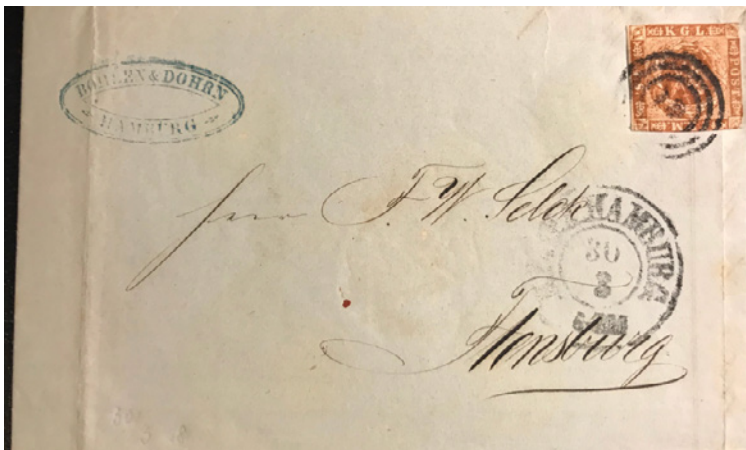 BOHLEN & DOHRN
HAMBURG
K G L
POST
Herr F. W. Selck
HAMBURG
30
8
Flensburg